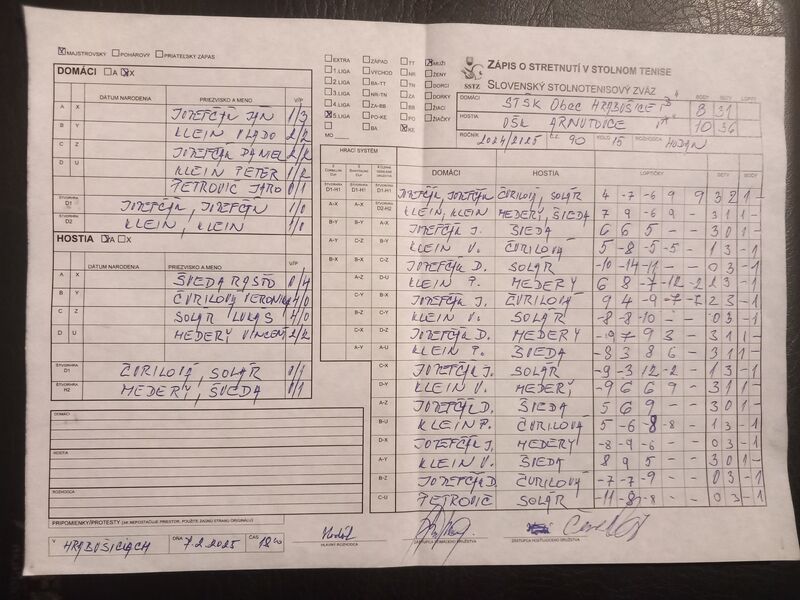 MAJSTROVSKÝ POHÁROVÝ PRIATEĽSKÝ ZÁPAS
DOMÁCI A X
DÁTUM NARODENIA PRIEZVISKO A MENO V/P
A X JOZEFČÁK JÁN 1/3
B Y KLEIN VLADO 2/2
C Z JOZEFČÁK DANIEL 2/2
D U KLEIN PETER 1/2
PETROVIČ JARO 0/1
ŠTVORHRA D1 JOZEFČÁK, JOZEFČÁK 1/0
ŠTVORHRA D2 KLEIN, KLEIN 1/0
HOSTIA A X
DÁTUM NARODENIA PRIEZVISKO A MENO V/P
A X ŠVEDA RASŤO 0/4
B Y ČURILOVÁ VERONIKA 4/0
C Z SOLÁR LUKÁŠ 4/0
D U MEDERY VINCENT 2/2
ŠTVORHRA ČURILOVÁ, SOLÁR 0/1
ŠTVORHRA H2 MEDERY, ŠVEDA 0/1
DOMÁCI
HOSTIA
ROZHODCA
PRIPOMIENKY/PROTESTY (AK NEPOSTAČUJE PRIESTOR, POUŽITE ZADNÚ STRANU ORIGINÁLU)
V HRABUŠICIACH DŇA 7.2.2025 ČAS 18 00
HLAVNÝ ROZHODCA
ZÁSTUPCA DOMÁCEHO DRUŽSTVA
ZÁSTUPCA HOSŤUJÚCEHO DRUŽSTVA
EXTRA ZÁPAD TT MUŽI
1.LIGA VÝCHOD NR ŽENY
2.LIGA BA-TT TN DORCI
3.LIGA NR-TN ZA DORKY
4.LIGA ZA-BB BB ŽIACI
5.LIGA PO-KE PO ŽIAČKY
BA KE
MO
SSTZ
ZÁPIS O STRETNUTÍ V STOLNOM TENISE
SLOVENSKÝ STOLNOTENISOVÝ ZVÄZ
BODY SETY LOPTY
DOMÁCI STSK OBEC HRABUŠICE 8 31
HOSTIA OŠK ARNUTOVCE 10 36
ROČNÍK 2024/2025 Č. 90 KOLO 15 ROZHODCA HODAN
HRACÍ SYSTÉM
DOMÁCI HOSTIA LOPTIČKY SETY BODY
ŠTVORHRA D1-H1 JOZEFČÁK, JOZEFČÁK ČURILOVÁ, SOLÁR 4 -7 -6 9 9 3 2 1 -
A-X KLEIN, KLEIN MEDERY, ŠVEDA 7 9 -6 9 - 3 1 1 -
B-Y JOZEFČÁK J. ŠVEDA 6 6 5 - - 3 0 1 -
A-Y KLEIN V. ČURILOVÁ 5 -8 -5 -5 - 1 3 - 1
B-X JOZEFČÁK D. SOLÁR -10 -14 -11 - - 0 3 - 1
A-Z KLEIN P. MEDERY 6 8 -7 -12 -2 2 3 - 1
C-Y JOZEFČÁK J. ČURILOVÁ 9 4 -9 -7 -7 2 3 - 1
B-Z KLEIN V. SOLÁR -8 -8 -10 - - 0 3 - 1
C-X JOZEFČÁK D. MEDERY -9 7 9 3 - 3 1 1 -
A-Y KLEIN P. ŠVEDA -8 3 8 6 - 3 1 1 -
C-X JOZEFČÁK J. SOLÁR -9 -3 12 -2 - 1 3 - 1
D-Y KLEIN V. MEDERY -9 6 6 9 - 3 1 1 -
A-Z JOZEFČÁK D. ŠVEDA 5 6 9 - - 3 0 1 -
B-U KLEIN P. ČURILOVÁ 5 -6 -8 -8 - 1 3 - 1
D-X JOZEFČÁK J. MEDERY -8 -9 -6 - - 0 3 - 1
A-Y KLEIN V. ŠVEDA 8 9 5 - - 3 0 1 -
B-Z JOZEFČÁK D ČURILOVÁ -7 -7 -9 - - 0 3 - 1
C-U PETROVIČ SOLÁR -11 -8 -8 - - 0 3 - 1